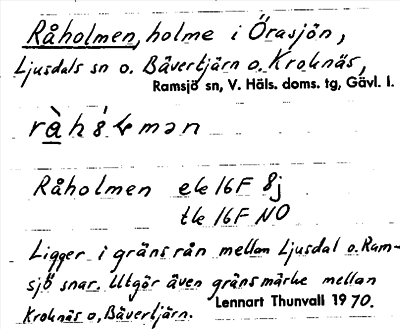 Råholmen, holme i Örasjön,
Ljusdals sn o. Bävertjärn o. Kroknäs,
Ramsjö sn, V. Häls. doms. tg, Gävl. l.
Råholmen ek 16F 8j
tk 16F NO
Ligger i gräns rån mellan Ljusdal o. Ram-
sjö snar. Utgör även gränsmärke mellan
Kroknäs o, Bävertjärn. Lennart Thunvall 1970.